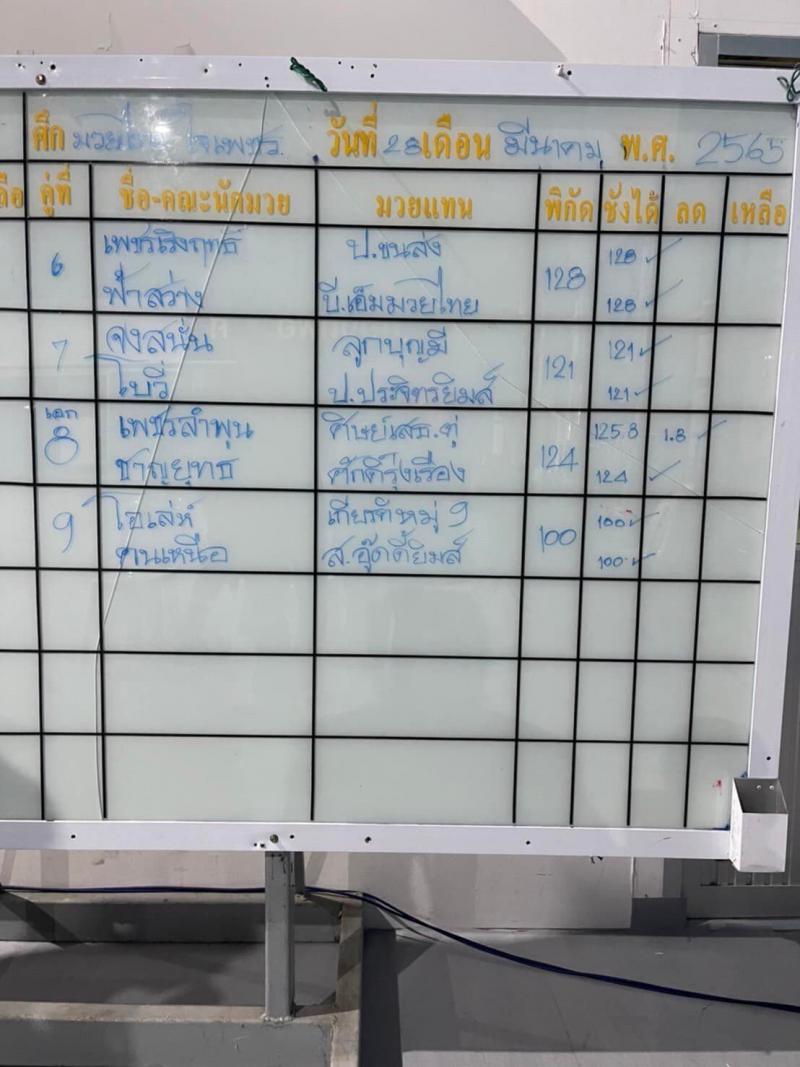 ศึก มวย เพชร. วันที่ 28 เดือน มีนาคม พ.ศ. 2565
คู่ที่ ชื่อ-คณะนักมวย มวยแทน พิกัด ชั่งได้ ลด เหลือ
เพชรเริงฤทธิ์ ป.ขนส่ง 128 ✓
6 128
ฟ้าสว่าง บี.เอ็มมวยไทย 128 ✓
จงสนั่น ลูกบุญมี 121 ✓
7 121
โบวี่ ป.ประจิทรยิมส์ 121 ✓
เอก เพชรลำพูน ศิษย์เสธ.ตู่ 125.8 1.8 ✓
8 124
ชาญยุทธ ศักดิ์รุ่งเรือง 124 ✓
ไอเล่ห์ เกียรติหมู่ 9 100 ✓
9 100
คนเหนือ ส.อู๊ดดี้ยิมส์ 100 ✓